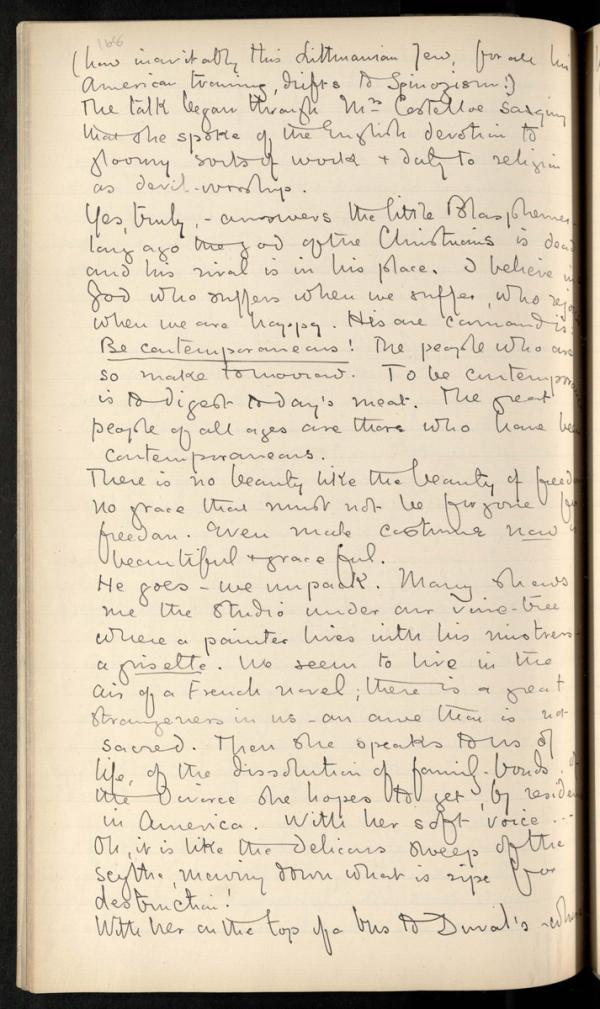 168
(how inevitably this Lithuanian Jew, for all his
American training, drifts to Spinozism!)
The talk began through Mrs Costelloe saying
that she spoke of the English devotion to
gloomy sorts of work & duty to religion
as devil-worship.
Yes, truly, - answers the little Blasphemer
long ago the god of the Christians is dead
and his rival is in his place. I believe in
God who suffers when we suffer, who rejoi
when we are happy. His one command is:
Be contemporaneous! The people who are
so make tomorrow. To be contempora
is to digest today's meat. The great
people of all ages are those who have been
contemporaneous.
There is no beauty like the beauty of freedo
no grace that must not be forgone for
freedom. Even male costume now is
beautiful & graceful.
He goes - we unpack. Mary shows
me the studio under our vine-tree
where a painter lives with his mistress -
a grisette. We seem to live in the
air of a French novel; there is a great
strangeness in us - an awe that is not
sacred. Then she speaks to us of
life, of the dissolution of family-bonds, of
the Divorce she hopes to get, by residen
in America. With her soft voice ...
Oh, it is like the delicious sweep of the
scythe, mowing down what is ripe for
destruction!
With her on the top of a bus to Duval's - where